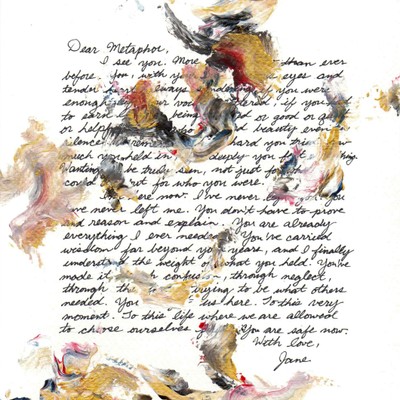 Dear Metaphor,
I see you. More than ever
before. you, with you eyes and
tender always wondering if you were
enough your voice mattered, if you
to earn being or good or
or help and beauty even in
silence. I remember hard you tried
much you held in deeply you
wanting be truly seen, not just for
could but for who you were.
here now. I've never you
ve never left me. You don't have to prove
and reason and explain. You are already
everything I ever needed. You've carried
wisdom far beyond your years, and I finally
understand the weight of what you held. You've
made it confusion, through neglect,
through the trying to be what others
needed. You us here. To this very
moment. To this life where we are allowed
to choose ourselves You are safe now.
With love,
Jane